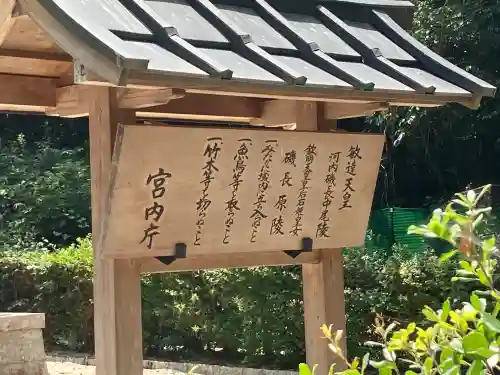 敏達天皇
河内磯長中尾陵
欽明天皇皇后石姫皇女
磯長原陵
一みだりに域内に立入らぬこと
一魚鳥等を取らぬこと
一竹木等を切らぬこと
宮内庁